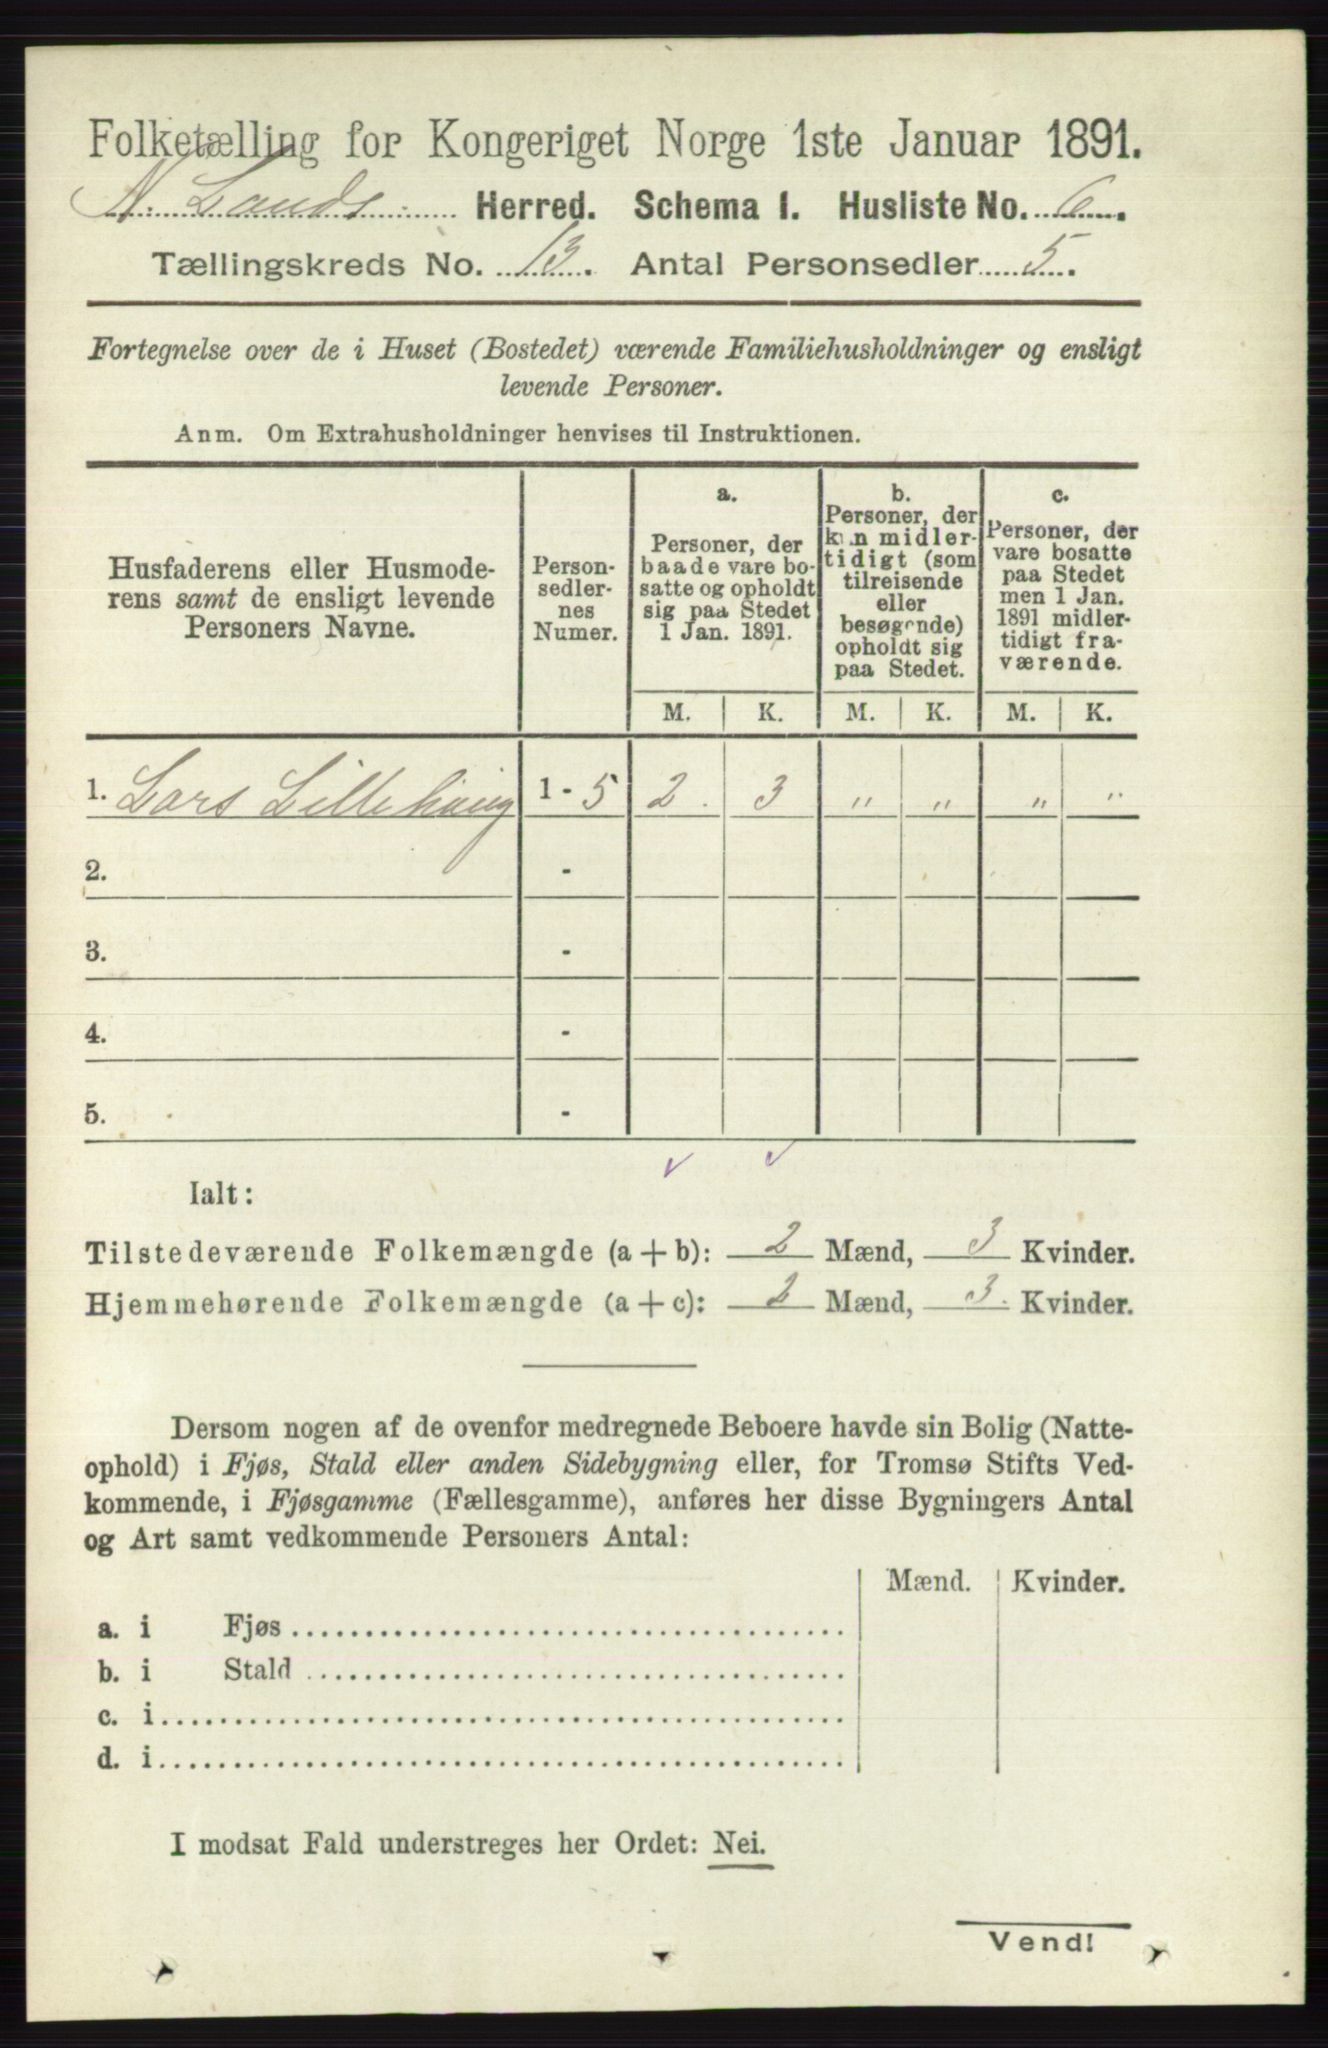 Folketælling for Kongeriget Norge 1ste Januar 1891.
N. Lands Herred. Schema 1. Husliste No. 6.
Tællingskreds No. 13. Antal Personsedler 5.
Fortegnelse over de i Huset (Bostedet) værende Familiehusholdninger og ensligt
levende Personer.
Anm. Om Extrahusholdninger henvises til Instruktionen.
Husfaderens eller Husmode-
rens samt de ensligt levende
Personers Navne.
Person-
sedler-
nes
Numer.
a.
Personer, der
baade vare bo-
satte og opholdt
sig paa Stedet
1 Jan. 1891.
b.
Personer, der
kun midler-
tidigt (som
tilreisende
eller
besøgende)
opholdt sig
paa Stedet.
c.
Personer, der
vare bosatte
paa Stedet
men 1 Jan.
1891 midler-
tidigt fra-
værende.
M. K. M. K. M. K.
1. Lars Lillehaug 1 - 5 2. 3 " " " "
2. -
3. -
4. -
5. -
Ialt:
Tilstedeværende Folkemængde (a + b): 2 Mænd, 3 Kvinder.
Hjemmehørende Folkemængde (a + c): 2 Mænd, 3. Kvinder.
Dersom nogen af de ovenfor medregnede Beboere havde sin Bolig (Natte-
ophold) i Fjøs, Stald eller anden Sidebygning eller, for Tromsø Stifts Ved-
kommende, i Fjøsgamme (Fællesgamme), anføres her disse Bygningers Antal
og Art samt vedkommende Personers Antal:
Mænd. Kvinder.
a. i Fjøs
b. i Stald
c. i
d. i
I modsat Fald understreges her Ordet: Nei.
Vend!